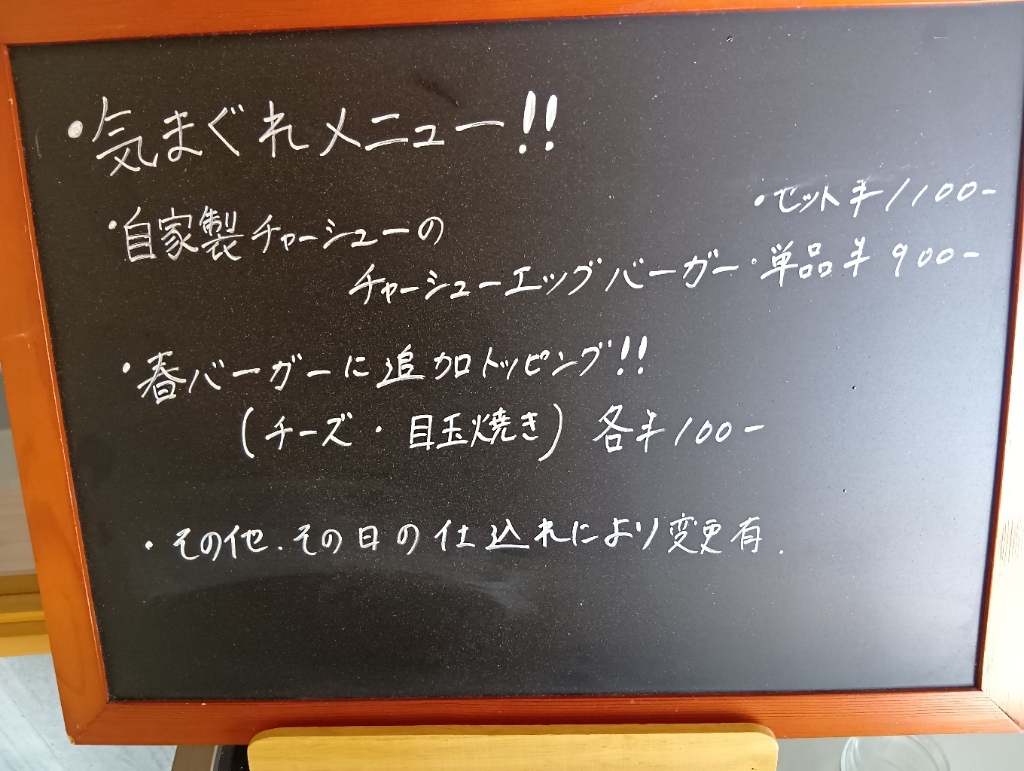 ・気まぐれメニュー!!
・自家製チャーシューの
・セット¥1100-
チャーシューエッグバーガー・単品¥900-
・春バーガーに追加トッピング!!
(チーズ・目玉焼き) 各¥100-
・その他.その日の仕込れにより変更有.